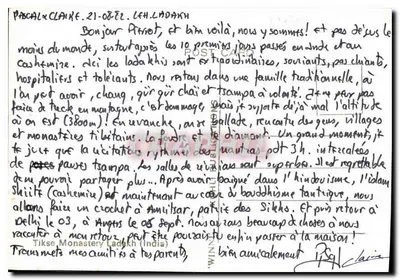 PASCAL & CLAIRE. 21-08-82. LEH. LADAKH
Bonjour Pierrot, et bien voilà, nous y sommes! et pas déçus le
moins du monde, surtout après les 10 premiers jours passés en Inde et au
Cachemire. Ici les ladakhis sont extraordinaires, souriants, pas chiants,
hospitaliers et tolérants. Nous restons dans une famille traditionnelle, où
l'on peut avoir, chang, gür gür chaï et tsampa à volonté. Je ne peux pas
faire de truck en montagne, c'est dommage, mais je supporte déjà mal l'altitude
où on est (3800m)! En revanche, on se ballade, rencontre des gens, villages
et monastères tibétains. La foudre diamant. Un grand moment, je
te jure que la récitation rythmée des mantras pdt 3h. intercalées
de pauses tsampa. Les salles de sont superbes. Il est regrettable
de ne pouvoir partager plus... Après avoir baigné dans l'hindouisme, l'islam
Shiite (cachemire) et maintenant au coeur du bouddhisme tantrique, nous
allons faire un crochet à Amritsar, patrie des Sikhs. Et puis retour à
Delhi le 03, à Angers le 05 Sept. Nous aurons beaucoup de choses à nous
raconter à mon retour, peut être pourrais tu enfin passer à la maison!
Tikse Monastery Ladakh (India)
Transmets mes amitiés à tes parents, bien amicalement
Claire
POST CARD